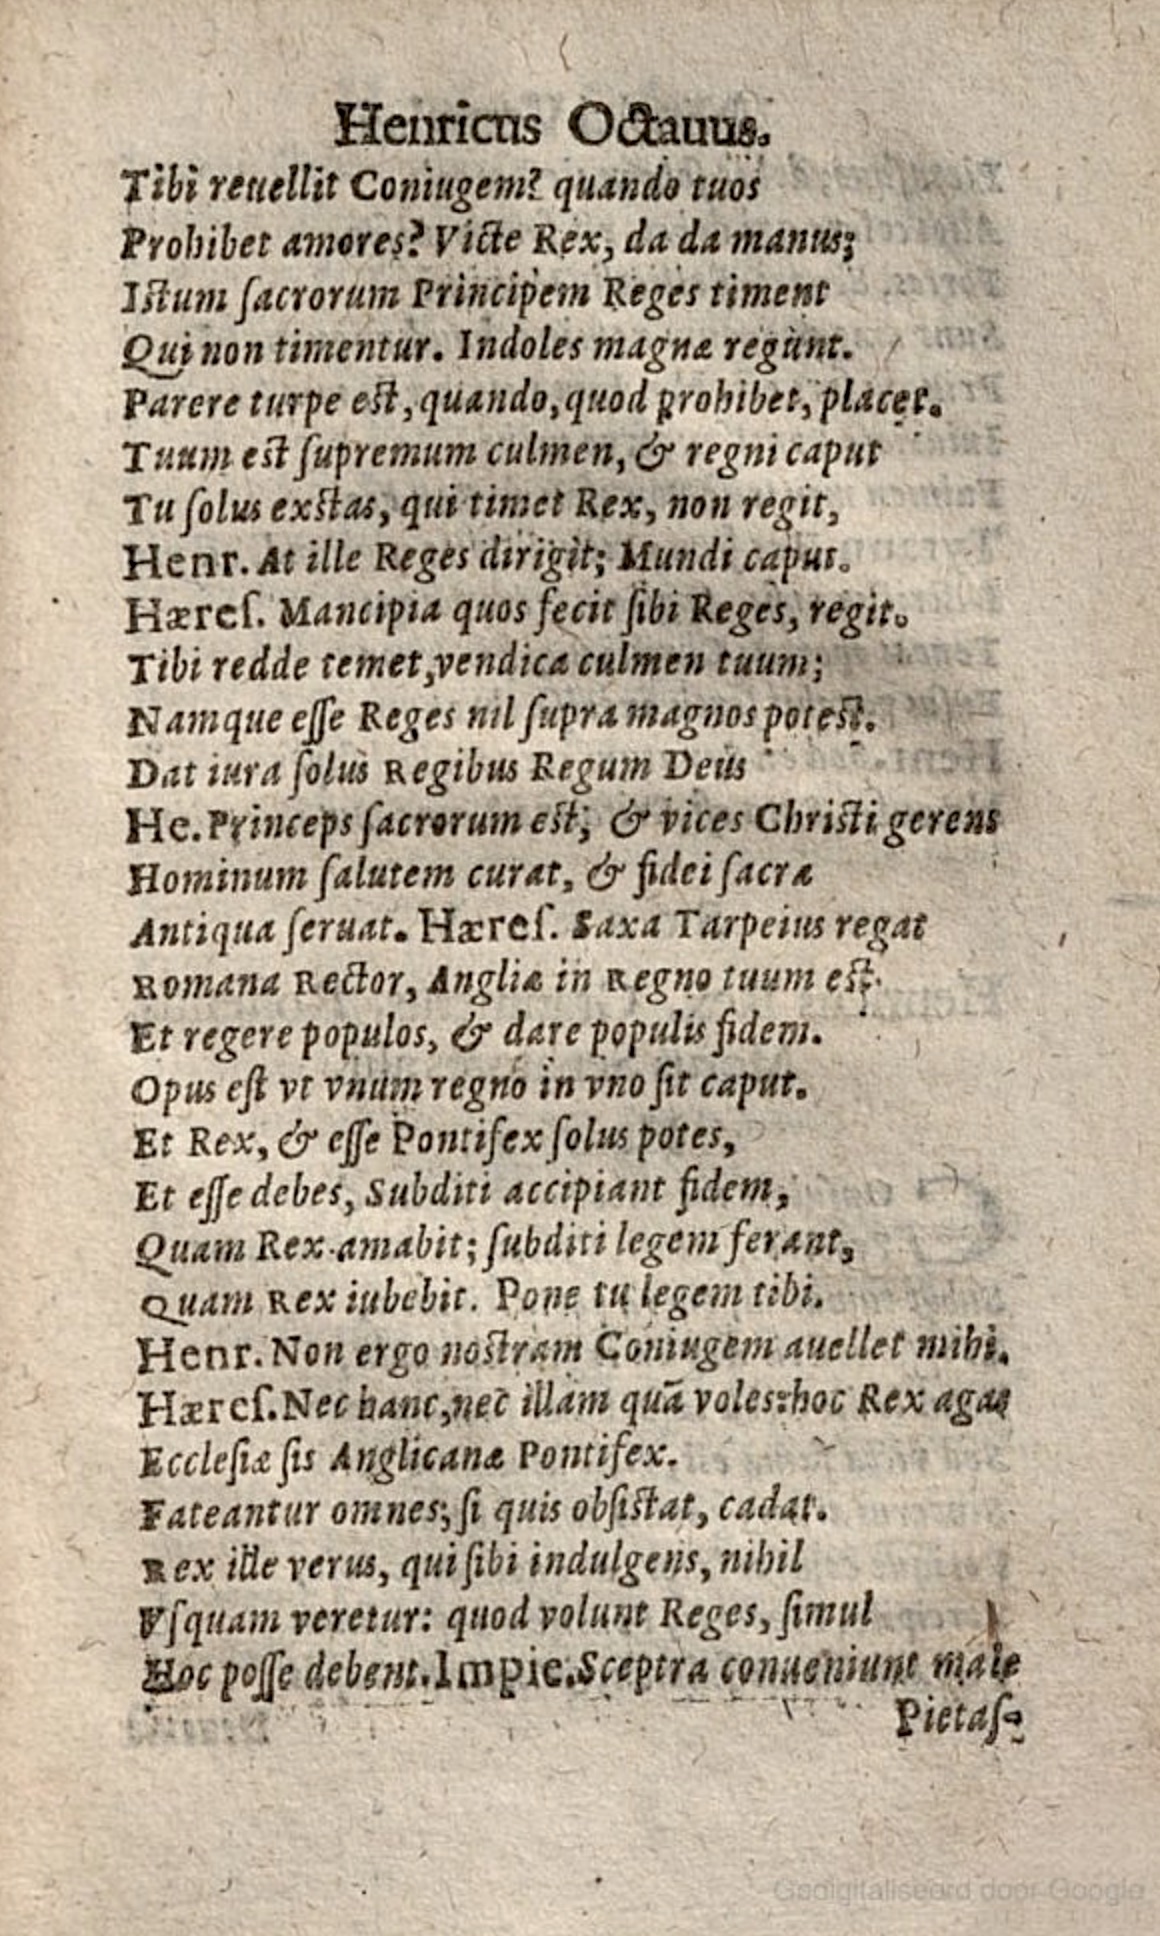 Henricus Octauus.
Tibi reuellit Coniugem? quando tuos
Prohibet amores? Victe Rex, da da manus;
Iſtum ſacrorum Principem Reges timent
Qui non timentur. Indoles magnæ regunt.
Parere turpe eſt, quando, quod prohibet, placet.
Tuum eſt ſupremum culmen, & regni caput
Tu ſolus exſtas, qui timet Rex, non regit,
Henr. At ille Reges dirigit; Mundi caput.
Hæreſ. Mancipia quos fecit ſibi Reges, regit.
Tibi redde temet, vendica culmen tuum;
Namque eſſe Reges nil ſupra magnos poteſt.
Dat iura ſolus Regibus Regum Deus
He. Princeps ſacrorum eſt; & vices Chriſti gerens
Hominum ſalutem curat, & fidei ſacra
Antiqua ſeruat. Hæreſ. Saxa Tarpeius regat
Romana Rector, Angliæ in Regno tuum eſt.
Et regere populos, & dare populis fidem.
Opus eſt vt vnum regno in vno ſit caput.
Et Rex, & eſſe Pontifex ſolus potes,
Et eſſe debes, Subditi accipiant fidem,
Quam Rex amabit; ſubditi legem ferant,
Quam Rex iubebit. Pone tu legem tibi.
Henr. Non ergo noſtram Coniugem auellet mihi.
Hæreſ. Nec hanc, nec illam quā voles: hoc Rex agas
Eccleſiæ ſis Anglicanæ Pontifex.
Fateantur omnes; ſi quis obſiſtat, cadat.
Rex ille verus, qui ſibi indulgens, nihil
Vſquam veretur: quod volunt Reges, ſimul
Hoc poſſe debent. Impie. Sceptra conueniunt male
Pietaſ-
Gedigitaliseerd door Google